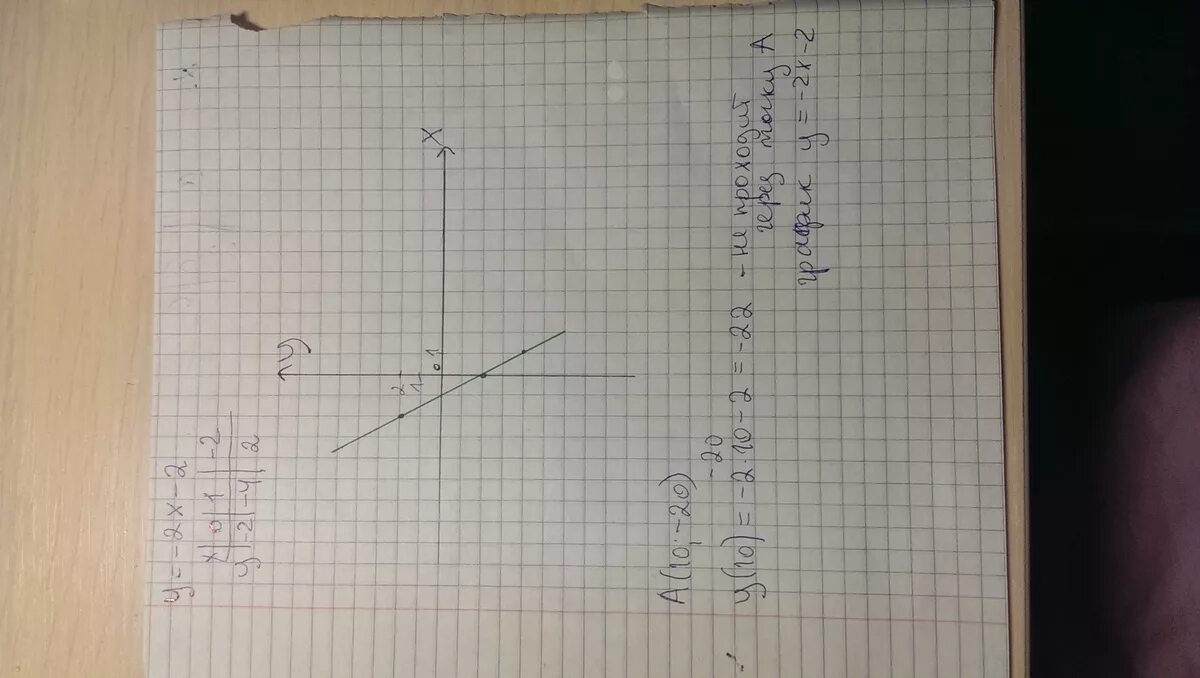 y = -2x-2
x | 0 | 1 | -2
y | -2 | -4 | 2
y
2
1
0 1
x
A(10; -20)
-20
y(10) = -2·10-2 = -22 - не проходит
через точку A
график y = -2x-2